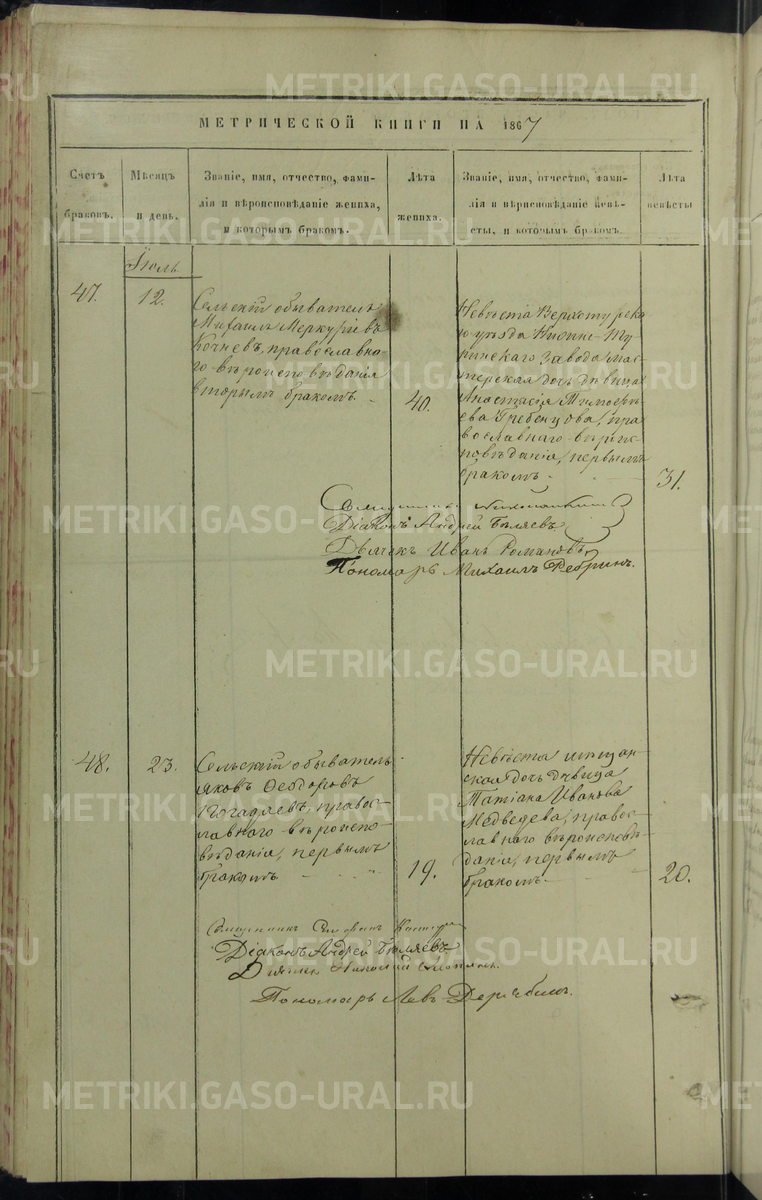 МЕТРИЧЕСКОЙ КНИГИ НА 1867
Счетъ
браковъ.
Мѣсяцъ
и день.
Званіе, имя, отчество, фами-
лія и вѣроисповѣданіе жениха,
и которымъ бракомъ.
Лѣта
жениха.
Званіе, имя, отчество, фами-
лія и вѣроисповѣданіе невѣ-
сты, и которымъ бракомъ.
Лѣта
невѣсты
Іюль
47.
12.
Сельскій обыватель
Михаилъ Меркуріевъ
Кочневъ, православна-
го вѣроисповѣданія
вторымъ бракомъ.
40.
Невѣста Верхотурска
го уѣзда Нижне-Ту-
ринскаго Завода Мас-
терская дочь дѣвица
Анастасія Тимоѳѣ-
ева Гребенщова, пра
вославнаго вѣроис-
повѣданія, первымъ
бракомъ.
31.
Священникъ
Діаконъ Андрей Бѣляевъ
Дьячекъ Иванъ Романовъ
Пономарь Михаилъ Ребринъ.
48.
23.
Сельскій обыватель
Яковъ Ѳеодоровъ
Богадяевъ, правос-
лавнаго вѣроиспо-
вѣданія, первымъ
бракомъ
19.
Невѣста мѣщан-
ская дочь дѣвица
Татіана Иванова
Медведева, правос-
лавнаго вѣроисповѣ-
данія, первымъ
бракомъ.
20.
Священникъ
Діаконъ Андрей Бѣляевъ
Дьячекъ Николай
Пономарь Левъ Дерябинъ.
METRIKI.GASO-URAL.RU